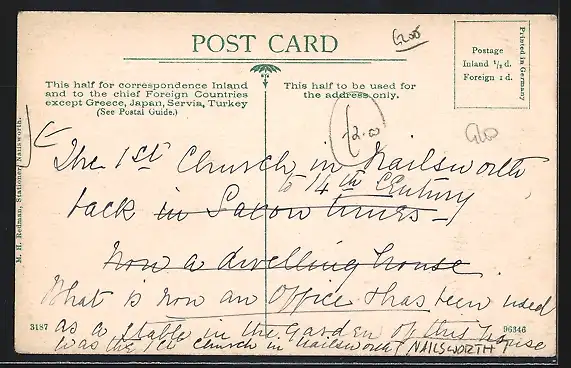 Glos
POST CARD
Postage
Inland ½ d.
Foreign 1 d.
Printed in Germany
This half for correspondence Inland
and to the chief Foreign Countries
except Greece, Japan, Servia, Turkey
(See Postal Guide.)
This half to be used for
the address only.
M. H. Redman, Stationer, Nailsworth.
12.00
Glos
The 1st Church in Nailsworth
to 14th Century
back in Saxon times
Now a dwelling house
What is now an office & has been used
as a stable in the garden of this house
was the 1st church in Nailsworth (NAILSWORTH)
3187
96346